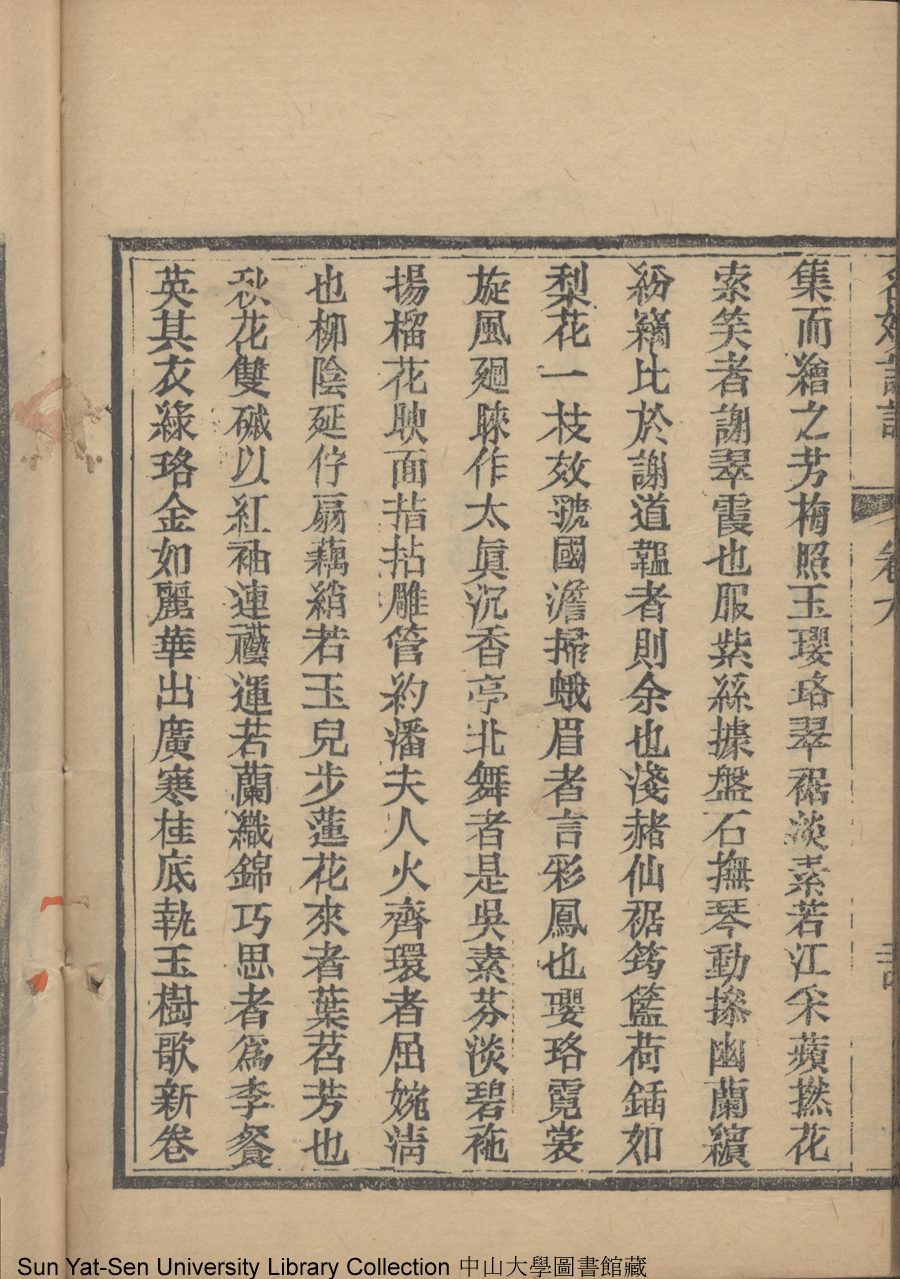 名媛詩話 卷六
集而繪之芳梅照玉瓔珞翠裾淡素若江采蘋撚花
索笑者謝翠霞也服紫絲據盤石撫琴動操幽蘭繽
紛竊比於謝道韞者則余也淺赭仙裾筠籃荷鍤如
梨花一枝效虢國澹掃蛾眉者言彩鳳也瓔珞霓裳
旋風廻睞作太眞沉香亭北舞者是吳素芬淡碧袘
揚榴花映面𢫾拈雕管約潘夫人火齊環者屈婉清
也柳陰延佇扇藕綃若玉兒步蓮花來者葉苕芳也
秋花雙碱以紅袖連𧞫運若蘭織錦巧思者爲李餐
英其衣綠珞金如麗華出廣寒桂底執玉樹歌新卷
Sun Yat-Sen University Library Collection 中山大學圖書館藏